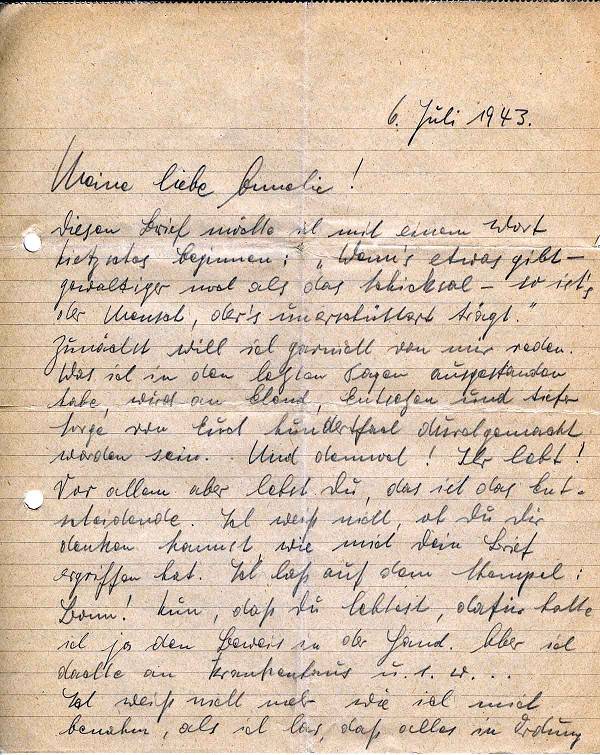 6. Juli 1943.
Meine liebe Annelie!
Diesen Brief möchte ich mit einem Wort
beginnen: „Wenn's etwas gibt –
gewaltiger noch als das Schicksal – so ist's
der Mensch, der's unerschüttert trägt."
Zunächst will ich garnicht von mir reden.
Was ich in den letzten Tagen ausgestanden
habe, wird an Elend, Entsetzen und tiefer
Sorge von Euch hundertfach durchgemacht
worden sein. Und dennoch! Ihr lebt!
Vor allem aber lebst Du, das ist das Ent-
scheidende. Ich weiß nicht, ob Du Dir
denken kannst, wie mich Dein Brief
ergriffen hat. Ich laß auf dem Stempel:
Bonn! Nun, daß Du lebtest, dafür hatte
ich ja den Beweis in der Hand. Aber ich
dachte an Krankenhaus u. s. w. ...
Ich weiß nicht mehr wie ich mich
benahm, als ich las, daß alles in Ordnung